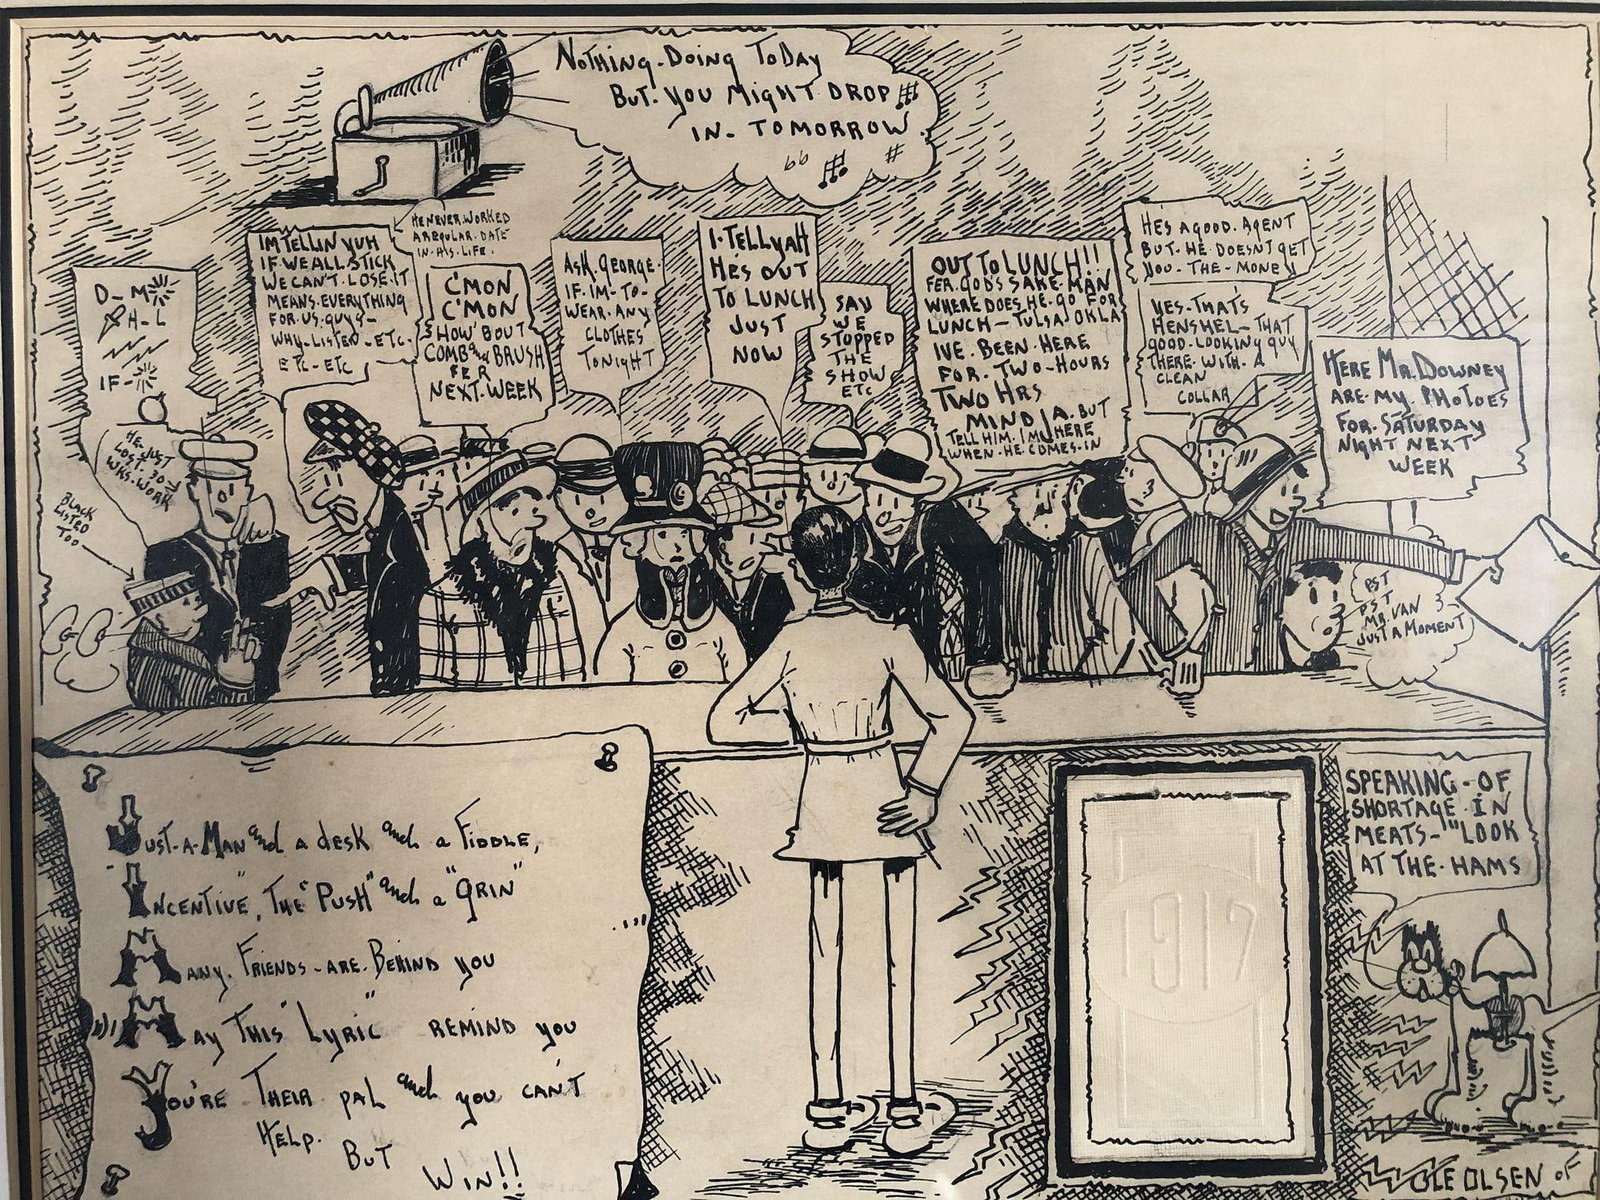 NOTHING-DOING TODAY
BUT. YOU MIGHT DROP
IN- TOMORROW.
D-M
H-L
IF-
HE JUST
LOST. 30
WKS. WORK
BLACK
LISTED
TOO
IM TELLIN YUH
IF WE ALL. STICK
WE CAN'T. LOSE. IT
MEANS. EVERYTHING
FOR. US. GUYS-
WHY- LISTEN- ETC-
ETC- ETC
HE NEVER. WORKED
A REGULAR. DATE
IN. HIS. LIFE.
C'MON
C'MON
HOW 'BOUT
COMB and BRUSH
FER
NEXT. WEEK
ASK. GEORGE.
IF. IM-TO-
WEAR. ANY
CLOTHES
TONIGHT
I. TELL YAH
HE'S OUT
TO LUNCH
JUST
NOW
SAY
WE
STOPPED
THE
SHOW
ETC
OUT TO LUNCH!!
FER. GODS SAKE. MAN
WHERE DOES. HE. GO FOR
LUNCH- TULSA OKLA
IVE. BEEN. HERE
FOR. TWO-HOURS
TWO HRS
MIND YA. BUT
TELL HIM. I'M HERE
WHEN. HE. COMES. IN
HES A GOOD. AGENT
BUT. HE. DOESN'T GET
YOU- THE- MONEY
YES- THAT'S
HENSHEL- THAT
GOOD. LOOKING GUY
THERE. WITH. A
CLEAN
COLLAR
HERE MR. DOWNEY
ARE. MY. PHOTOES
FOR. SATURDAY
NIGHT NEXT
WEEK
PST
PST
MR. VAN
JUST A MOMENT
JUST-A-MAN and A DESK and A FIDDLE,
INCENTIVE, THE "PUSH" and A "GRIN"
MANY. FRIENDS- ARE. BEHIND YOU
MAY THIS "LYRIC" REMIND YOU
YOU'RE THEIR PAL and YOU CAN'T
HELP.
BUT
WIN!!
1917
SPEAKING-OF
SHORTAGE IN
MEATS- "LOOK
AT THE. HAMS
OLE OLSEN OF